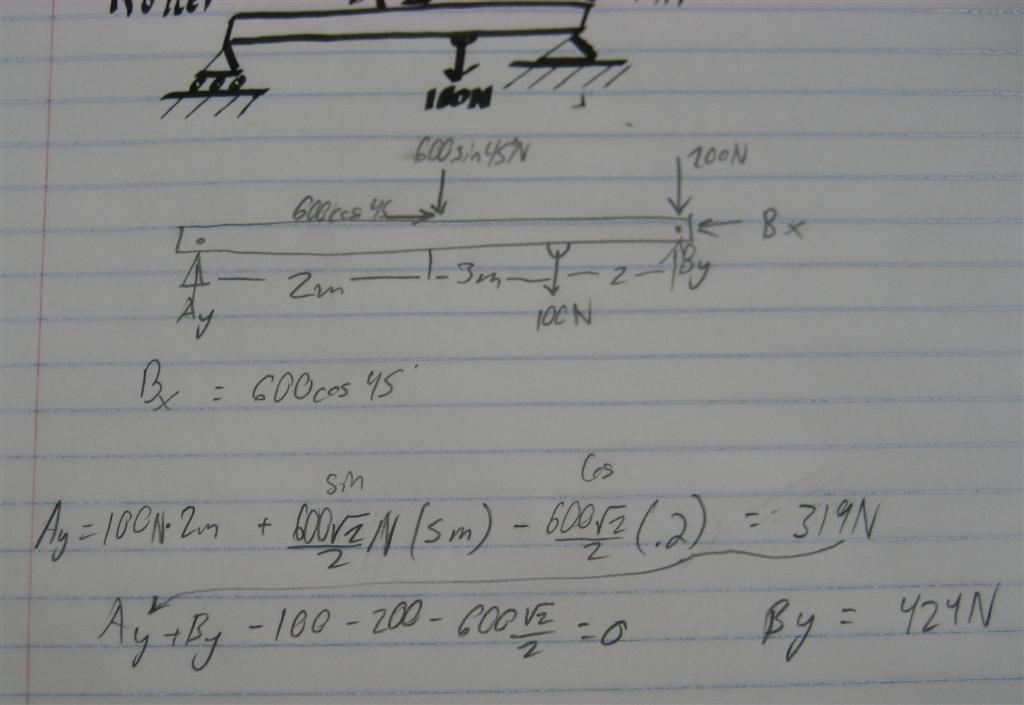 Roller
100N
600sin45N 200N
600cos45 Bx
2m 3m 2 By
Ay 100N
Bx = 600cos 45
sin Cos
Ay = 100N·2m + 600√2/2 N (5m) - 600√2/2 (.2) = 319N
Ay + By - 100 - 200 - 600 √2/2 = 0 By = 424N